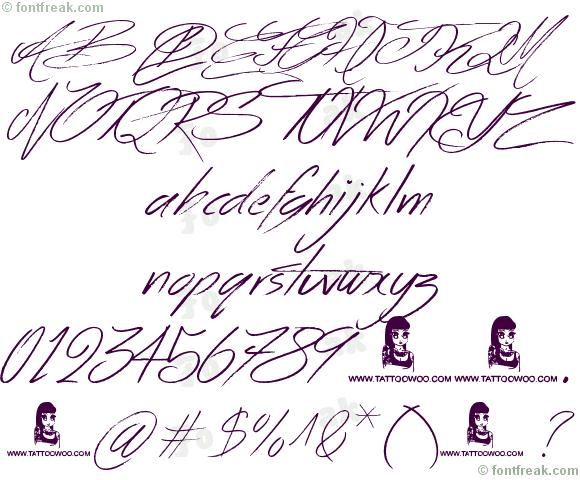 © fontfreak.com
A B C D E F G H I J K L M
N O P Q R S T U V W X Y Z
abcdefghijklm
nopqrstuvwxyz
0123456789 WWW.TATTOOWOO.COM WWW.TATTOOWOO.COM .
WWW.TATTOOWOO.COM @ # $ % 1 & * ( ) WWW.TATTOOWOO.COM ?
© fontfreak.com